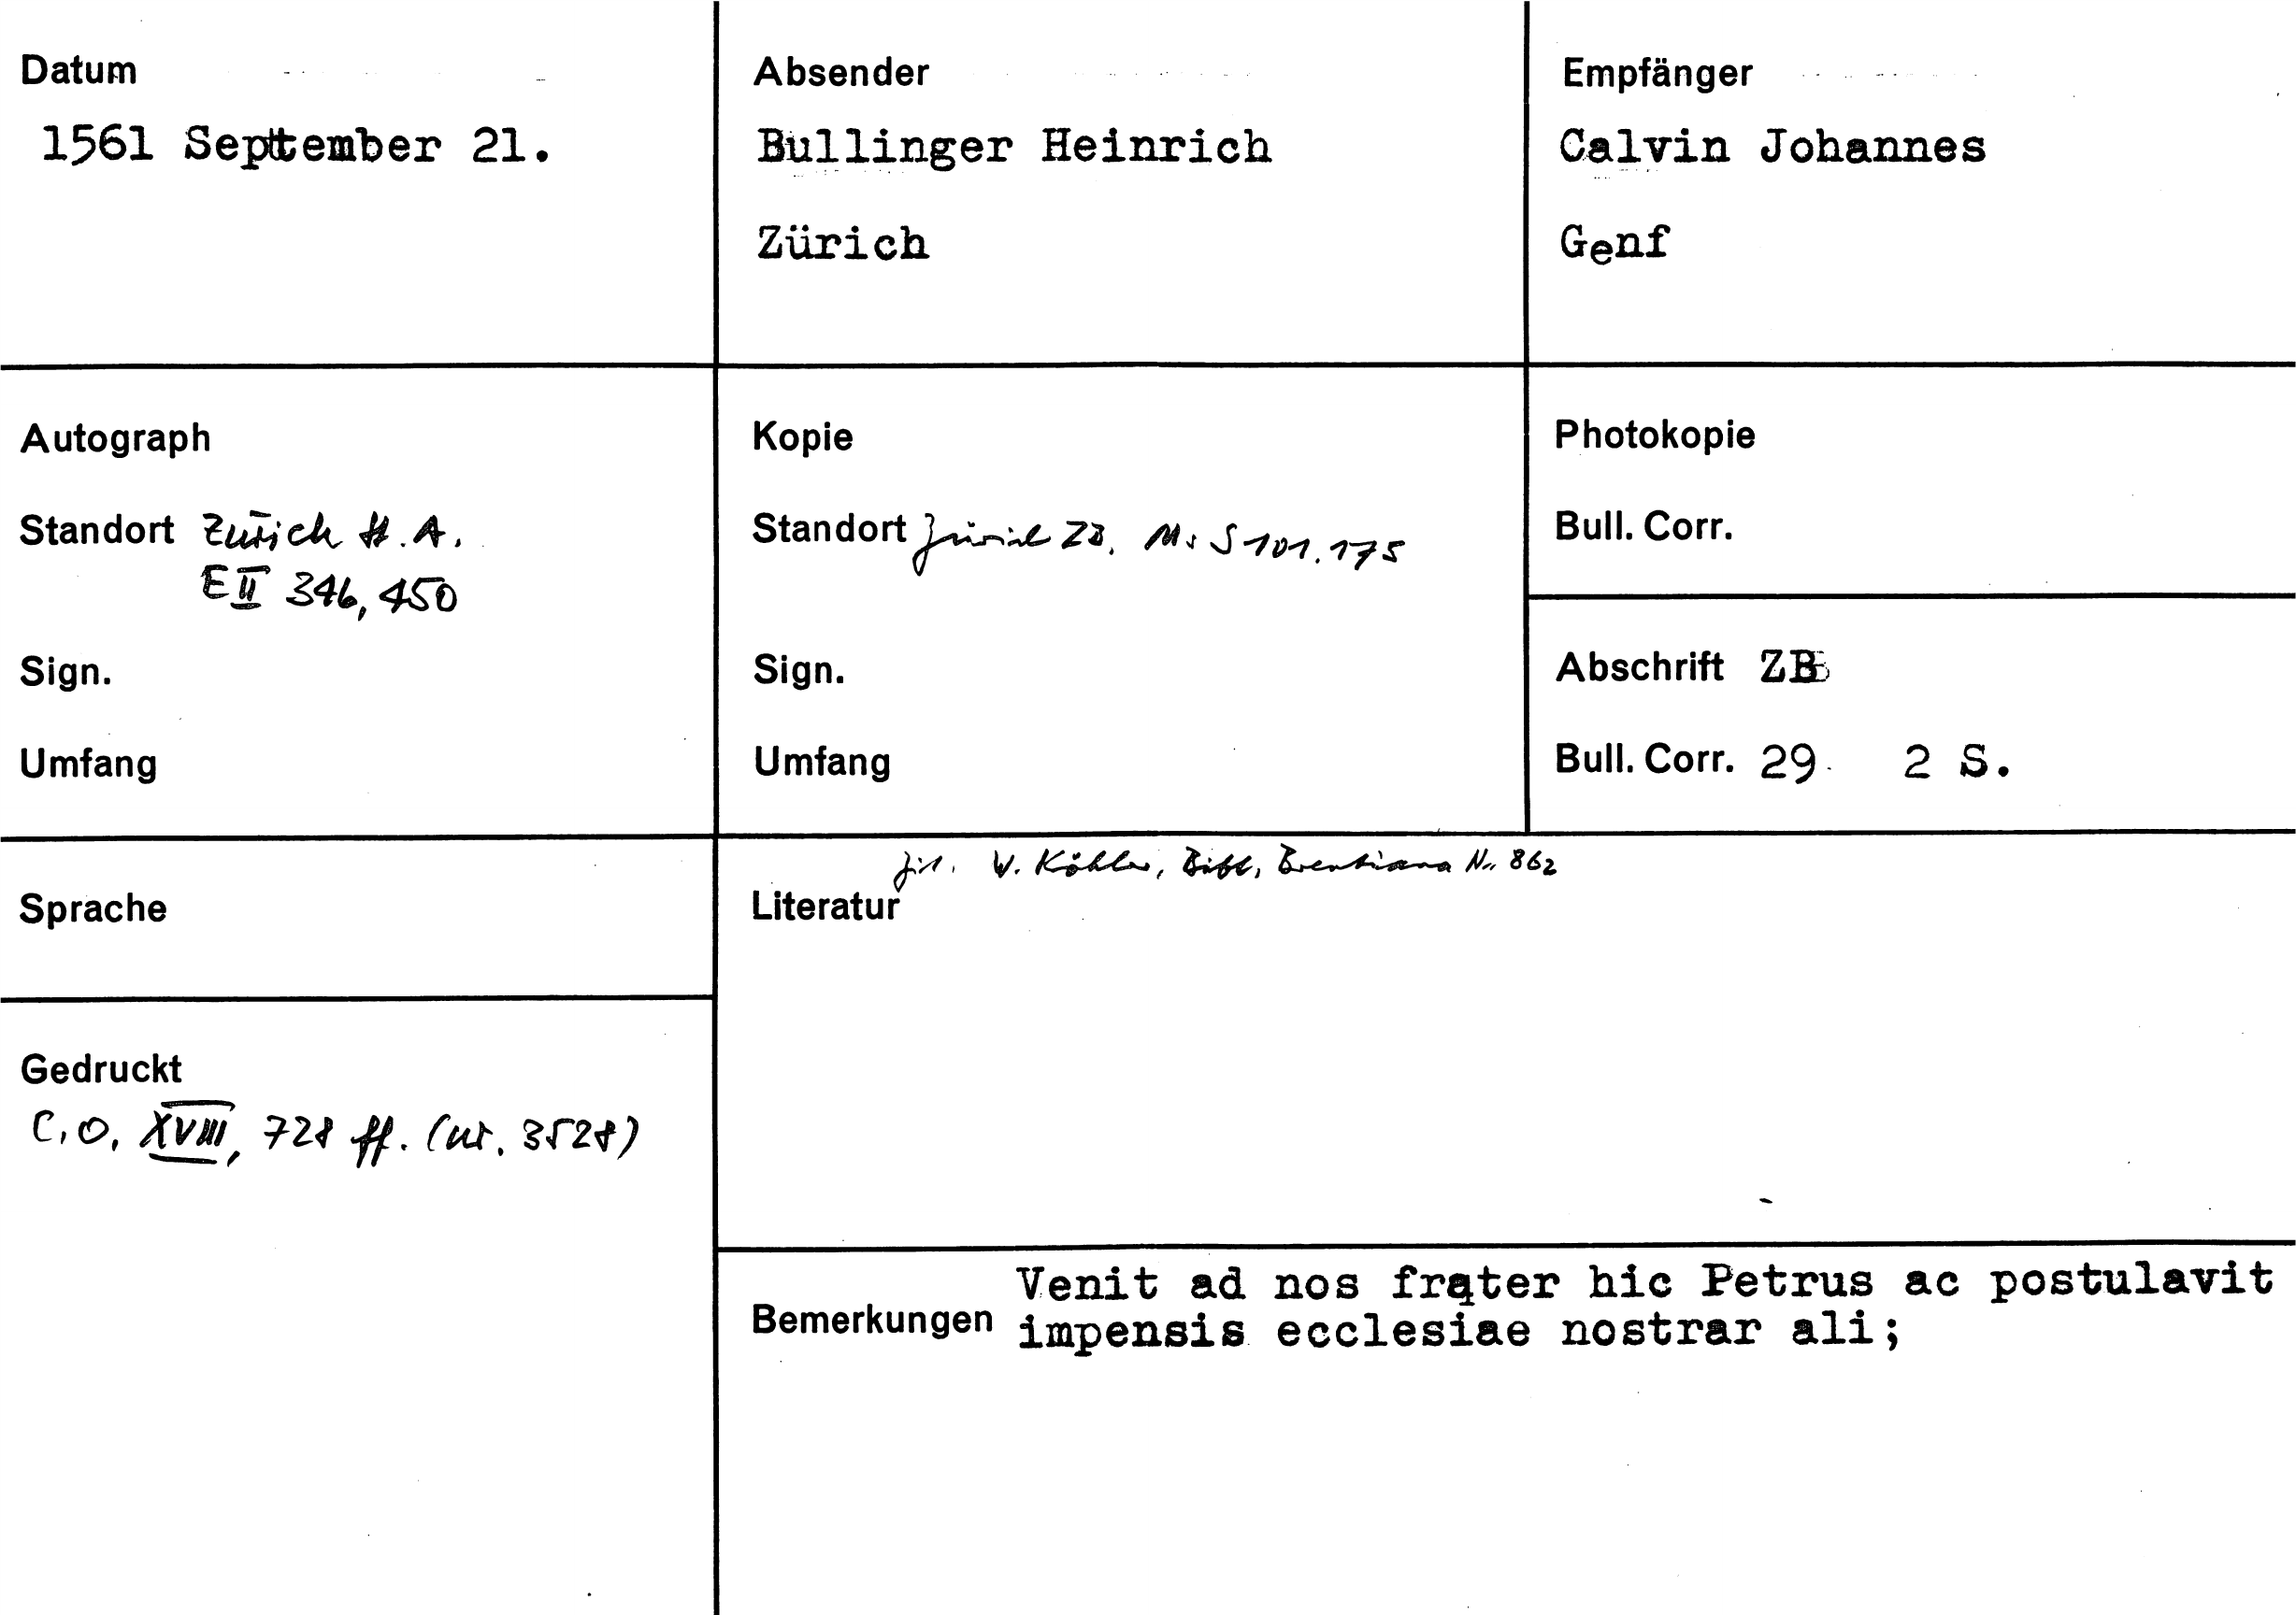 Datum
1561 September 21.
Absender
Bullinger Heinrich
Zürich
Empfänger
Calvin Johannes
Genf
Autograph
Standort Zürich St.A.
E II 346, 450
Sign.
Umfang
Kopie
Standort Zürich ZB, Ms S 101.175
Sign.
Umfang
Photokopie
Bull. Corr.
Abschrift ZB
Bull. Corr. 29 2 S.
Sprache
Gedruckt
C.O. XVIII, 728 ff. (Nr. 3528)
zit. W. Köhler, Bibl. Brentiana Nr. 862
Literatur
Venit ad nos frater hic Petrus ac postulavit
Bemerkungen impensis ecclesiae nostrar ali;